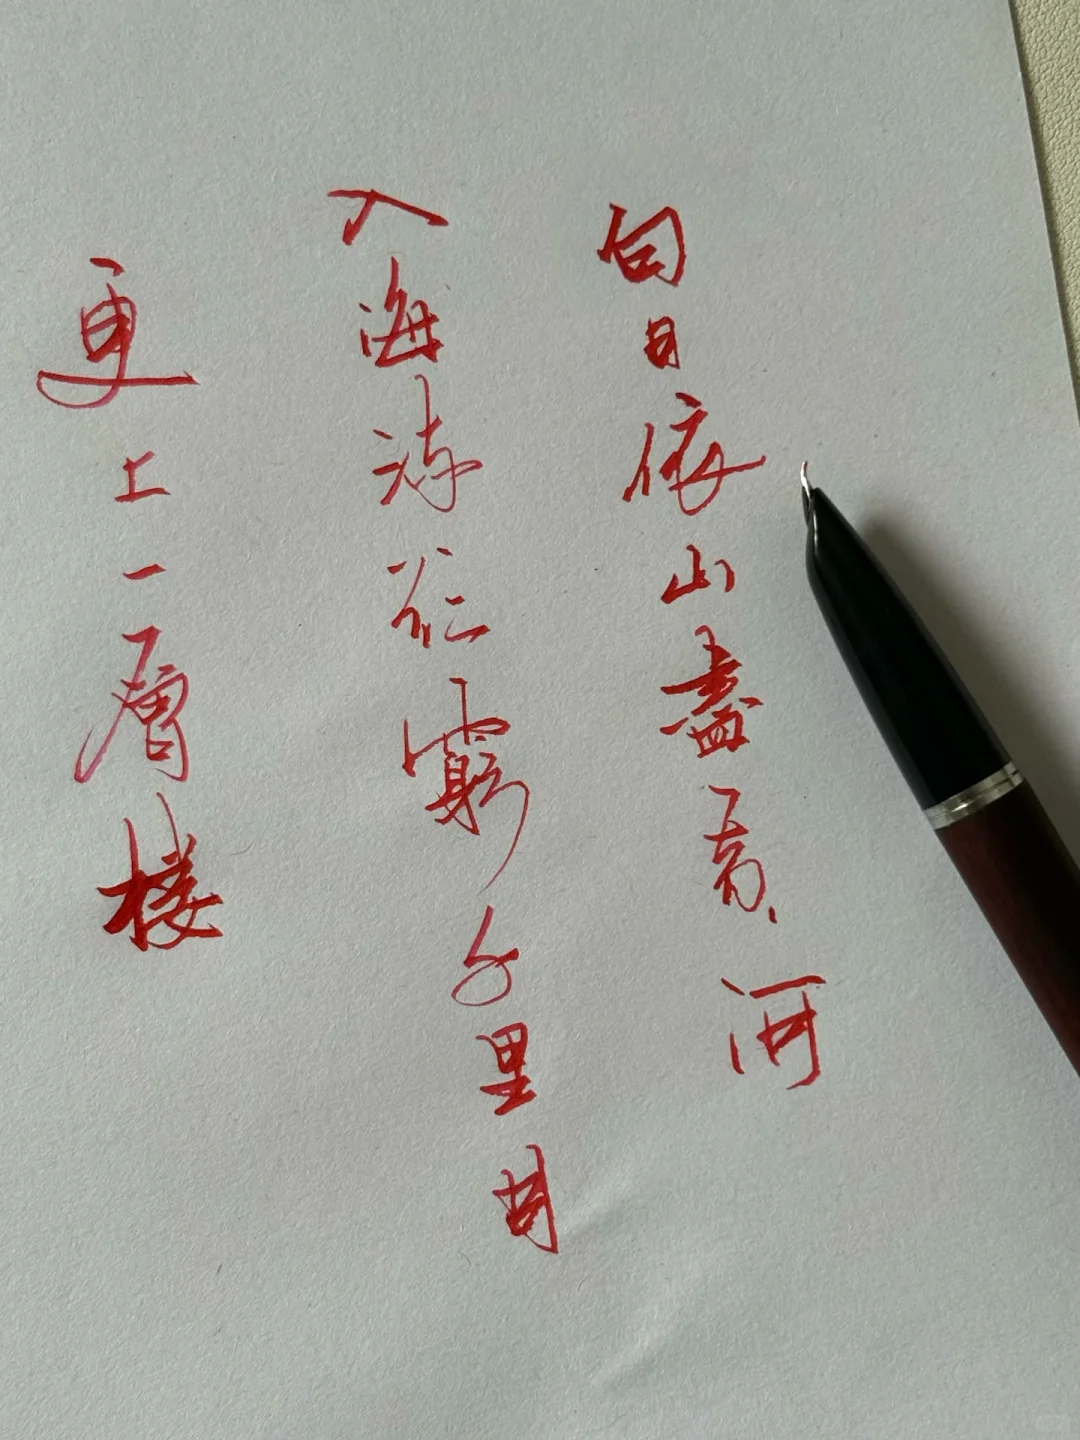 白日依山盡黄河
入海流欲窮千里目
更上一層楼